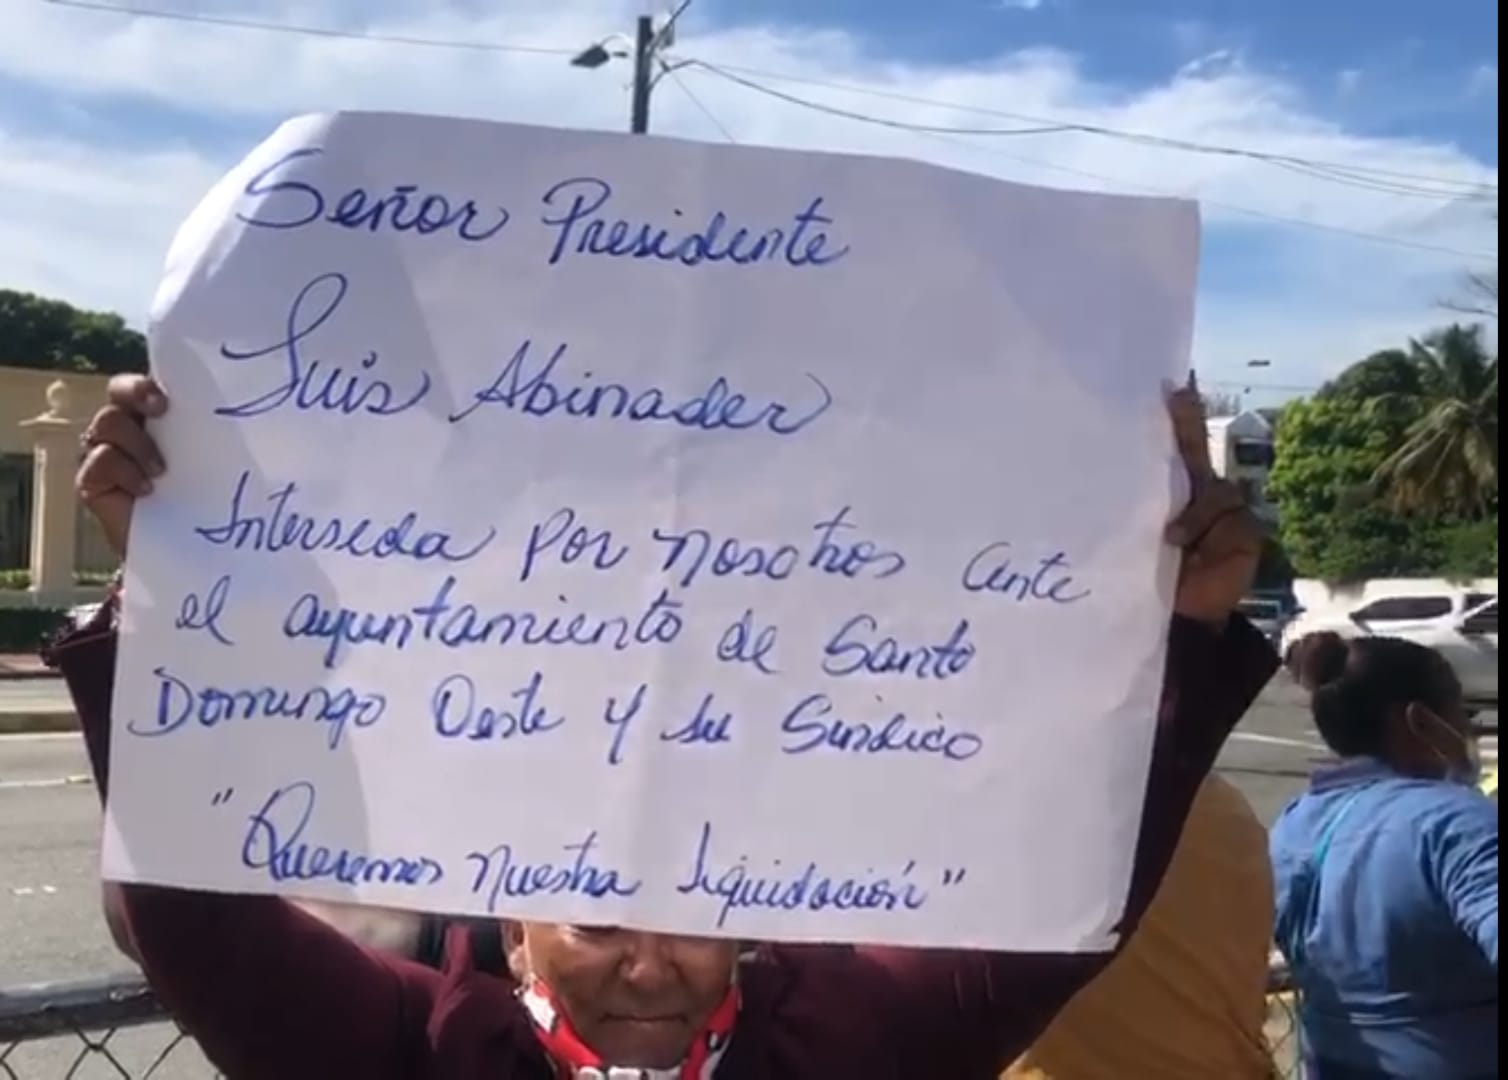 Señor Presidente
Luis Abinader
Interseda por nosotros ante
el ayuntamiento de Santo
Domingo Oeste y su Sindico
"Queremos nuestra liquidación"